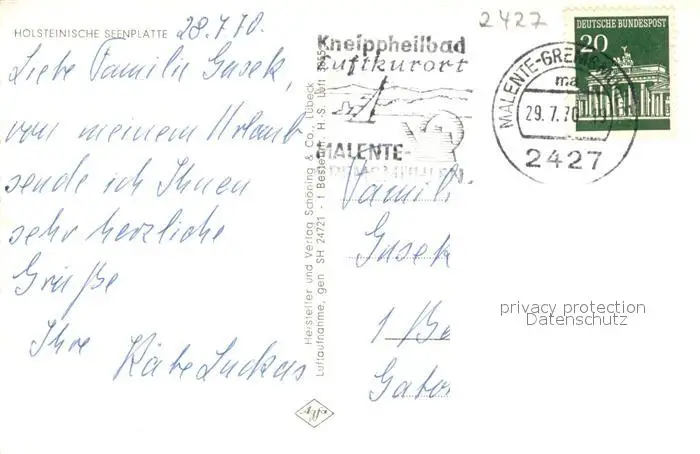 HOLSTEINISCHE SEENPLATTE
28.7.70.
Liebe Familie Gusek,
von meinem Urlaub
sende ich Ihnen
sehr herzliche
Grüße
Ihre
Käte Luckas
Hersteller und Verlag Schöning & Co., Lübeck
Luftaufnahme, gen SH 24721 - 1 Bestell-Nr. H. S. Luft
2427
Kneippheilbad
Luftkurort
MALENTE-
GREMSMÜHLEN
MALENTE-GREMSM
ma
29.7.70
2427
DEUTSCHE BUNDESPOST
20
Famili
Gusek
1 Be
Gato
privacy protection
Datenschutz